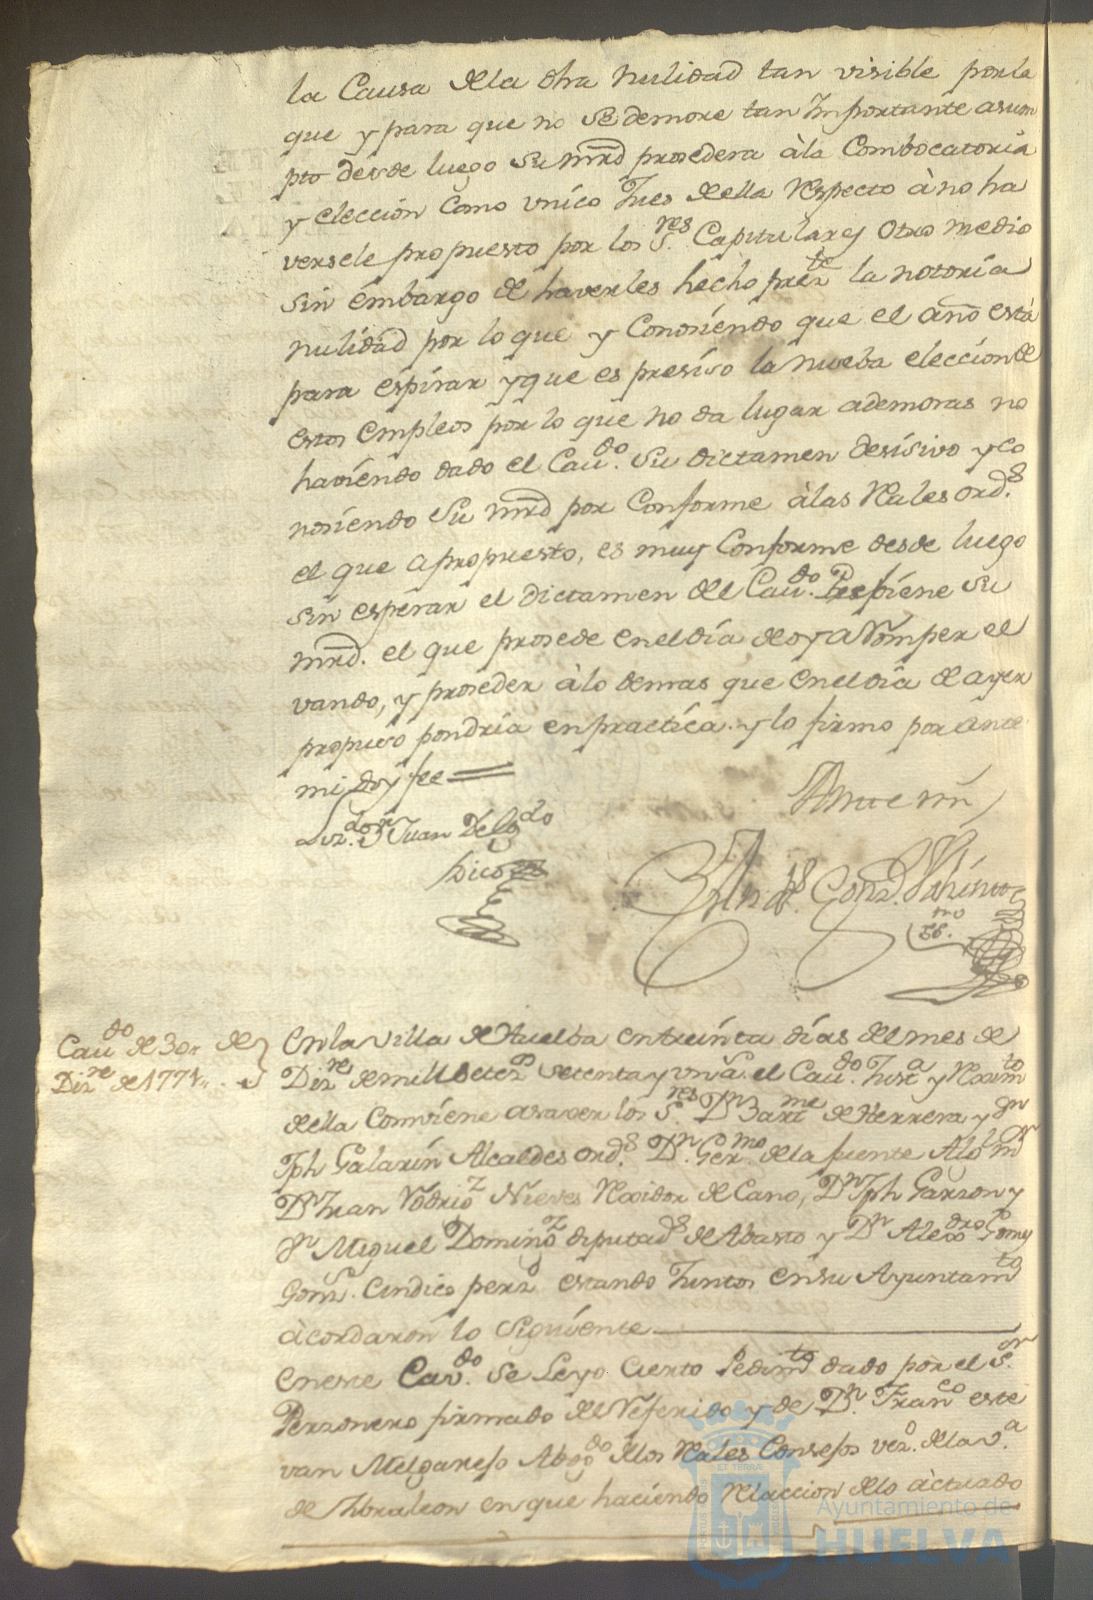 la Causa de la dha nulidad tan visible por la
que y para que no se demore tan Importante asum
pto desde luego su mrd prosedera à la Combocatoria
y eleccion como vnico Jues de ella Respecto à no ha
versele propuesto por los S.res Capitulares Otro medio
sin embargo de haverles hecho prez.te la notoria
nulidad por lo que y Conosiendo que el año está
para espirar y que es presiso la nueba eleccion de
estos empleos por lo que no da lugar a demoras no
haviendo dado el Cau.do su dictamen desisivo y co
nosiendo su mrd por Conforme à las Rales ord.s
el que a propuesto, es muy Conforme desde luego
sin esperar el dictamen del Cau.do
mrd. el que prosede en el dia de oy a Romper el
vando, y proseder à lo demas que en el dia de ayer
propuso pondria en practica. y lo firmo por ante
mi doy fee =
Liz.do Dn Juan Delg.do
Ante mi
Gonz.
Cau.do de 30 de
Diz.re de 1771
En la Villa de Huelba en treinta dias del mes de
Diz.re de mill setez.os setenta y vn a. el Cau.do Just.a y Rexim.to
de ella Conviene a saver los S.res Dn Bart.me de Herrera y Dn
Jph Galarin Alcaldes ord.s Dn Ger.mo de la fuente Alg.l m.or
Dn Juan Rodrig.z Nieves Rexidor de Cano, Dn Jph Garzon y
Dn Miguel Doming.z diputad.s de Abasto y Dn Alex.dro Gomz
Gonz. Cindico perz.o estando Juntos en su Ayuntam.to
àcordaron lo Siguiente
En este Cav.do se Leyo Cierto Pedim.to dado por el S.or
Perzonero firmado del Referido y de Dn Fran.co este
van Melgarejo Abog.do de los Rales Consejos vez.o de la v.a
de Jibraleon en que haciendo Relaccion de lo àctuado
Ayuntamiento de
HUELVA